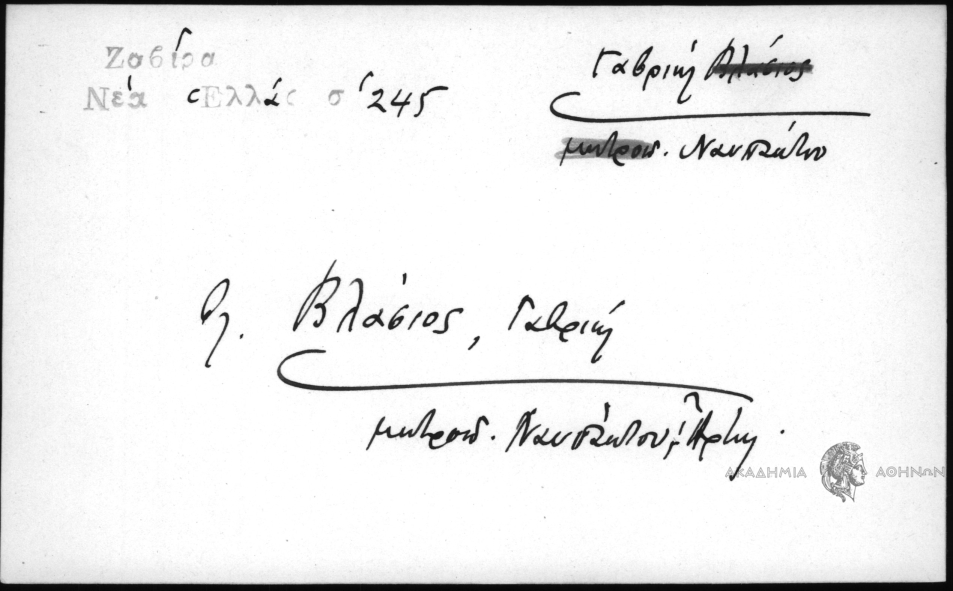 Ζαβίρα
Νέα Ἑλλάς σ 245
Γαβριήλ Βλάσιος
μητροπ. Ναυπάκτου
βλ. Βλάσιος, Γαβριήλ
μητροπ. Ναυπάκτου, Ἄρτης.
ΑΚΑΔΗΜΙΑ ΑΘΗΝΩΝ